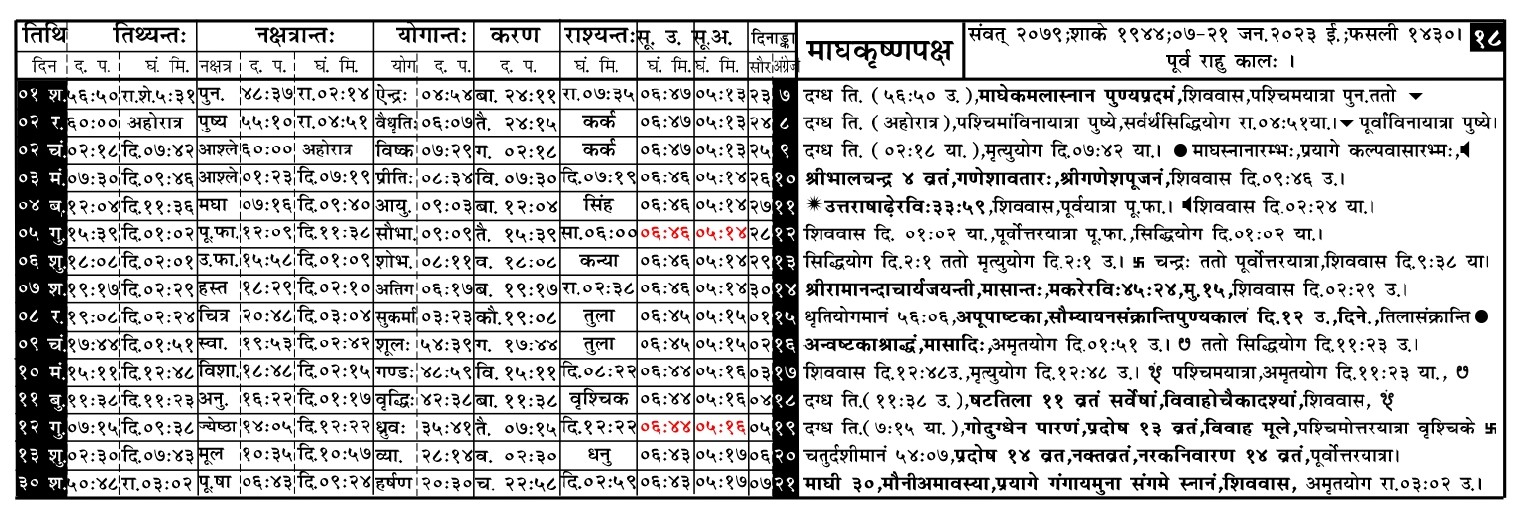 तिथि तिथ्यन्तः नक्षत्रान्तः योगान्तः करण राश्यन्तः सू. उ. सू.अ. दिनाङ्का माघकृष्णपक्ष संवत् २०७९;शाके १९४४;०७-२१ जन.२०२३ ई.;फसली १४३०। १८
दिन द. प. घं. मि. नक्षत्र द. प. घं. मि. योग द. प. द. प. घं. मि. घं. मि. घं. मि. सौर अंग्रेज पूर्व राहु कालः ।
०१ श. ५६:५० रा.शे.५:३१ पुन. ४८:३७ रा.०२:१४ ऐन्द्रः ०४:५४ बा. २४:११ रा.०७:३५ ०६:४७ ०५:१३ २३ ७ दग्ध ति. (५६:५० उ.),माघेकमलास्नान पुण्यप्रदमं,शिववास,पश्चिमयात्रा पुन.ततो
०२ र. ६०:०० अहोरात्र पुष्य ५५:१० रा.०४:५१ वैधृतिः ०६:०७ तै. २४:१५ कर्क ०६:४७ ०५:१३ २४ ८ दग्ध ति. (अहोरात्र),पश्चिमांविनायात्रा पुष्ये,सर्वर्थसिद्धियोग रा.०४:५१या.। पूर्वांविनायात्रा पुष्ये।
०२ चं. ०२:१८ दि.०७:४२ आश्ले ६०:०० अहोरात्र विष्क ०७:२९ ग. ०२:१८ कर्क ०६:४७ ०५:१३ २५ ९ दग्ध ति. (०२:१८ या.),मृत्युयोग दि.०७:४२ या.। ● माघस्नानारम्भः,प्रयागे कल्पवासारभ्मः,
०३ मं. ०७:३० दि.०९:४६ आश्ले ०१:२३ दि.०७:१९ प्रीतिः ०८:३४ वि. ०७:३० दि.०७:१९ ०६:४६ ०५:१४ २६ १० श्रीभालचन्द्र ४ व्रतं,गणेशावतारः,श्रीगणेशपूजनं,शिववास दि.०९:४६ उ.।
०४ बु. १२:०४ दि.११:३६ मघा ०७:१६ दि.०९:४० आयु. ०९:०३ बा. १२:०४ सिंह ०६:४६ ०५:१४ २७ ११ उत्तराषाढ़ेरविः३३:५९,शिववास,पूर्वयात्रा पू.फा.। शिववास दि.०२:२४ या.।
०५ गु. १५:३९ दि.०१:०२ पू.फा. १२:०९ दि.११:३८ सौभा. ०९:०९ तै. १५:३९ सा.०६:०० ०६:४६ ०५:१४ २८ १२ शिववास दि. ०१:०२ या.,पूर्वोत्तरयात्रा पू.फा.,सिद्धियोग दि.०१:०२ या.।
०६ शु. १८:०८ दि.०२:०१ उ.फा. १५:५८ दि.०१:०९ शोभ. ०८:११ व. १८:०८ कन्या ०६:४६ ०५:१४ २९ १३ सिद्धियोग दि.२:१ ततो मृत्युयोग दि.२:१ उ.। 卐 चन्द्रः ततो पूर्वोत्तरयात्रा,शिववास दि.९:३८ या।
०७ श. १९:१७ दि.०२:२९ हस्त १८:२९ दि.०२:१० अतिग ०६:१७ ब. १९:१७ रा.०२:३८ ०६:४६ ०५:१४ ३० १४ श्रीरामानन्दाचार्यजयन्ती,मासान्तः,मकरेरविः४५:२४,मु.१५,शिववास दि.०२:२९ उ.।
०८ र. १९:०८ दि.०२:२४ चित्र २०:४८ दि.०३:०४ सुकर्मा ०३:२३ कौ. १९:०८ तुला ०६:४५ ०५:१५ ०१ १५ धृतियोगमानं ५६:०६,अपूपाष्टका,सौम्यायनसंक्रान्तिपुण्यकालं दि.१२ उ.,दिने.,तिलासंक्रान्ति ●
०९ चं. १७:४४ दि.०१:५१ स्वा. १९:५३ दि.०२:४२ शूलः ५४:३९ ग. १७:४४ तुला ०६:४५ ०५:१५ ०२ १६ अन्वष्टकाश्राद्धं,मासादिः,अमृतयोग दि.०१:५१ उ.। ७ ततो सिद्धियोग दि.११:२३ उ.।
१० मं. १५:११ दि.१२:४८ विशा. १८:४८ दि.०२:१५ गण्डः ४८:५९ वि. १५:११ दि.०८:२२ ०६:४४ ०५:१६ ०३ १७ शिववास दि.१२:४८उ.,मृत्युयोग दि.१२:४८ उ.। पश्चिमयात्रा,अमृतयोग दि.११:२३ या., ७
११ बु. ११:३८ दि.११:२३ अनु. १६:२२ दि.०१:१७ वृद्धिः ४२:३८ बा. ११:३८ वृश्चिक ०६:४४ ०५:१६ ०४ १८ दग्ध ति.(११:३८ उ.),षटतिला ११ व्रतं सर्वेषां,विवाहोचैकादश्यां,शिववास,
१२ गु. ०७:१५ दि.०९:३८ ज्येष्ठा १४:०५ दि.१२:२२ ध्रुवः ३५:४१ तै. ०७:१५ दि.१२:२२ ०६:४४ ०५:१६ ०५ १९ दग्ध ति.(७:१५ या.),गोदुग्धेन पारणं,प्रदोष १३ व्रतं,विवाह मूले,पश्चिमोत्तरयात्रा वृश्चिके 卐
१३ शु. ०२:३० दि.०७:४३ मूल १०:३५ दि.१०:५७ व्या. २८:१४ व. ०२:३० धनु ०६:४३ ०५:१७ ०६ २० चतुर्दशीमानं ५४:०७,प्रदोष १४ व्रत,नक्तव्रतं,नरकनिवारण १४ व्रतं,पूर्वोत्तरयात्रा।
३० श. ५०:४८ रा.०३:०२ पू.षा ०६:४३ दि.०९:२४ हर्षण २०:३० च. २२:५८ दि.०२:५९ ०६:४३ ०५:१७ ०७ २१ माघी ३०,मौनीअमावस्या,प्रयागे गंगायमुना संगमे स्नानं,शिववास, अमृतयोग रा.०३:०२ उ.।